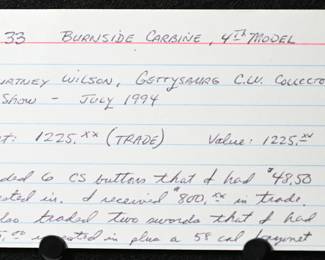 33 BURNSIDE CARBINE, 4th MODEL
URTNEY WILSON, GETTYSBURG C.W. COLLECTO
SHOW - JULY 1994
t: 1225.xx (TRADE) Value: 1225.xx
ded 6 CS buttons that I had $48.50
sted in. I received $800.xx in trade.
lso traded two swords that I had
5.00 invested in plus a 58 cal bayonet